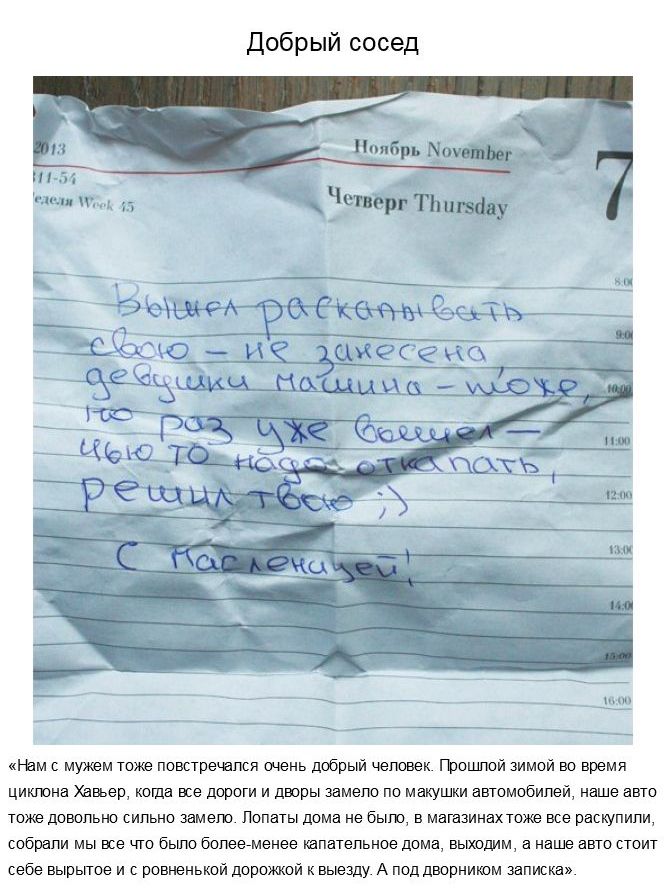 Добрый сосед
2013
Ноябрь November
7
311-54
Неделя Week 45
Четверг Thursday
8:00
Вышел раскапывать
9:00
свою – не занесена,
девушки машина – тоже,
10:00
но раз уже вышел –
11:00
чью то надо откапать,
решил твою ;)
12:00
13:00
С Масленицей!
14:00
15:00
16:00
«Нам с мужем тоже повстречался очень добрый человек. Прошлой зимой во время
циклона Хавьер, когда все дороги и дворы замело по макушки автомобилей, наше авто
тоже довольно сильно замело. Лопаты дома не было, в магазинах тоже все раскупили,
собрали мы все что было более-менее капательное дома, выходим, а наше авто стоит
себе вырытое и с ровненькой дорожкой к выезду. А под дворником записка».